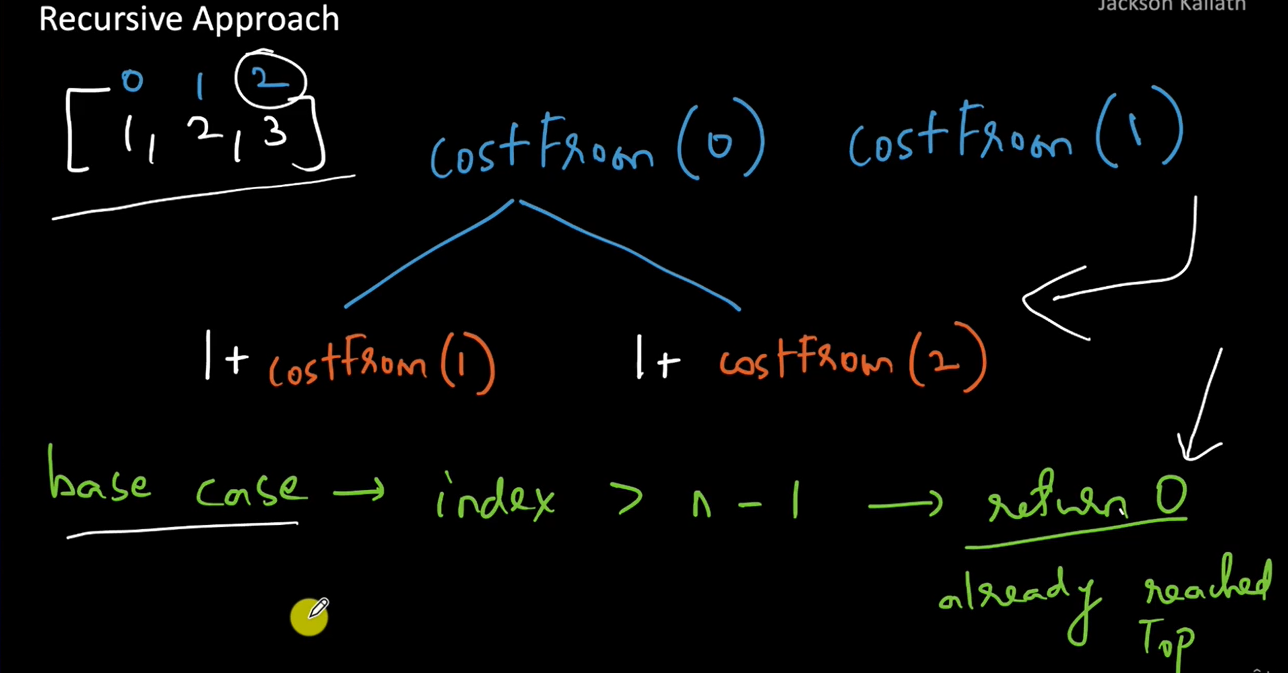 Recursive Approach
Jackson Kailath
0 1 2
[1, 2, 3]
costFrom(0) costFrom(1)
1+ costFrom(1) 1+ costFrom(2)
base case → index > n - 1 → return 0
already reached
Top